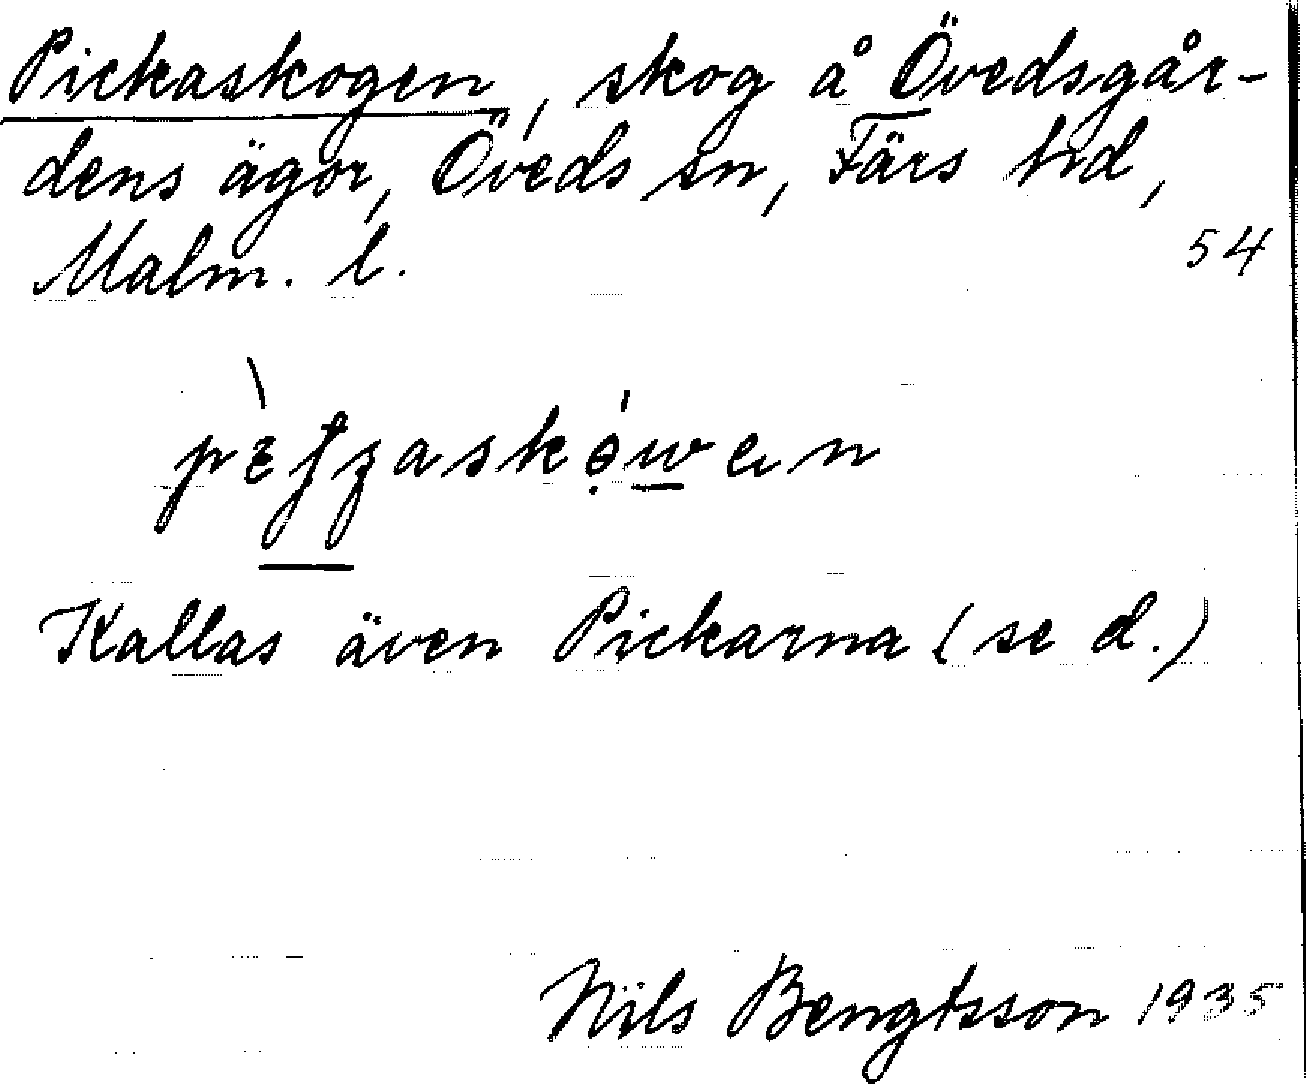 Pickaskogen, skog å Övedsgår-
dens ägor, Öveds sn, Färs hd,
Malm. l.
54
Kallas även Pickarna (se d.)
Nils Bengtsson 1935